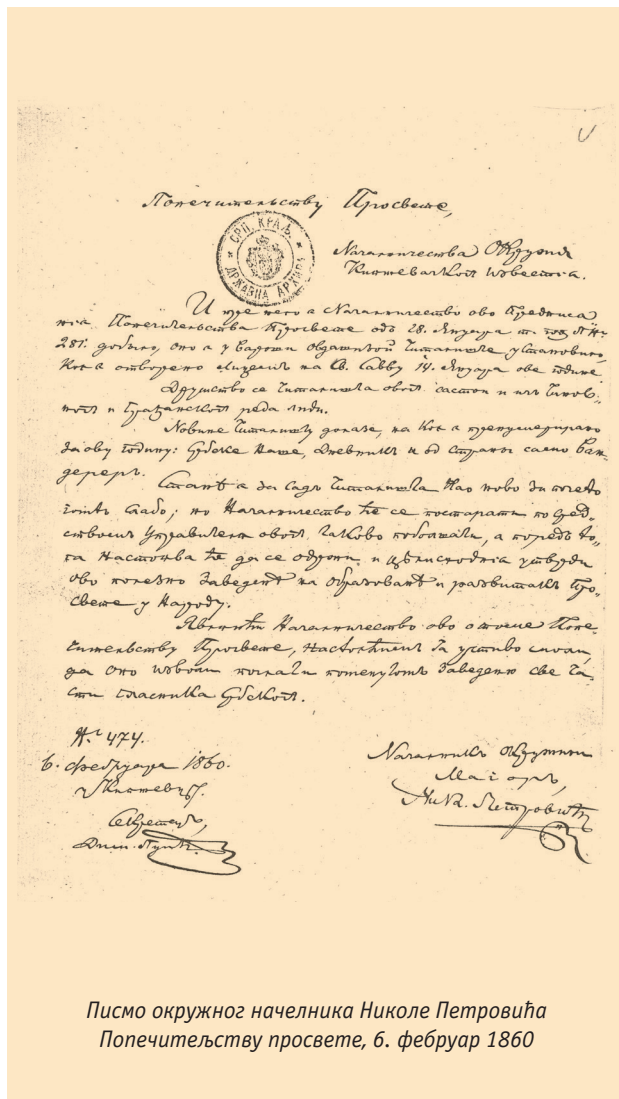 Попечительству Просвете,
СРП. КРАЉ.
ДРЖАВНА АРХИВА
Началничества Окружия
Књажевачког известие.
И пре него є Началничество ово Предписа
ніє Попечительства Просвете одъ 28. Януара т. год №
281. добило, оно є у вароши овдашньой Читалиште установило,
коє є отворено на Св. Савву 14. Януара ове године
Друштво се Читалишта овога састои и изъ Чинов-
нога и Грађанскога реда људи.
Новине Читалишту долазе, на коє є пренумерирано
за ову годину: Србске Наше, Дневникъ и од страни само Ван-
дереръ.
Станѣ є за садъ Читалишта као ново за почето
слабо; но Началничество ће се постарати посред-
ствомъ Управителя овога побољшати, а поредъ то-
га Настојава ће да се одржи и утврди
ово полезно Заведенѣ на образованѣ и развитакъ Про-
свете у Народу.
Явлјајући Началничество ово о томе Попе-
чительству Просвете, за учтиво
да оно изволи поменутомъ Заведеню све ча-
сти гласника Србског.
№ 474.
6. Фебруара 1860.
у Књажевцу.
Секретар,
Началникъ Окружни
Маіоръ,
Ник. Петровић
Писмо окружног начелника Николе Петровића
Попечитељству просвете, 6. фебруар 1860